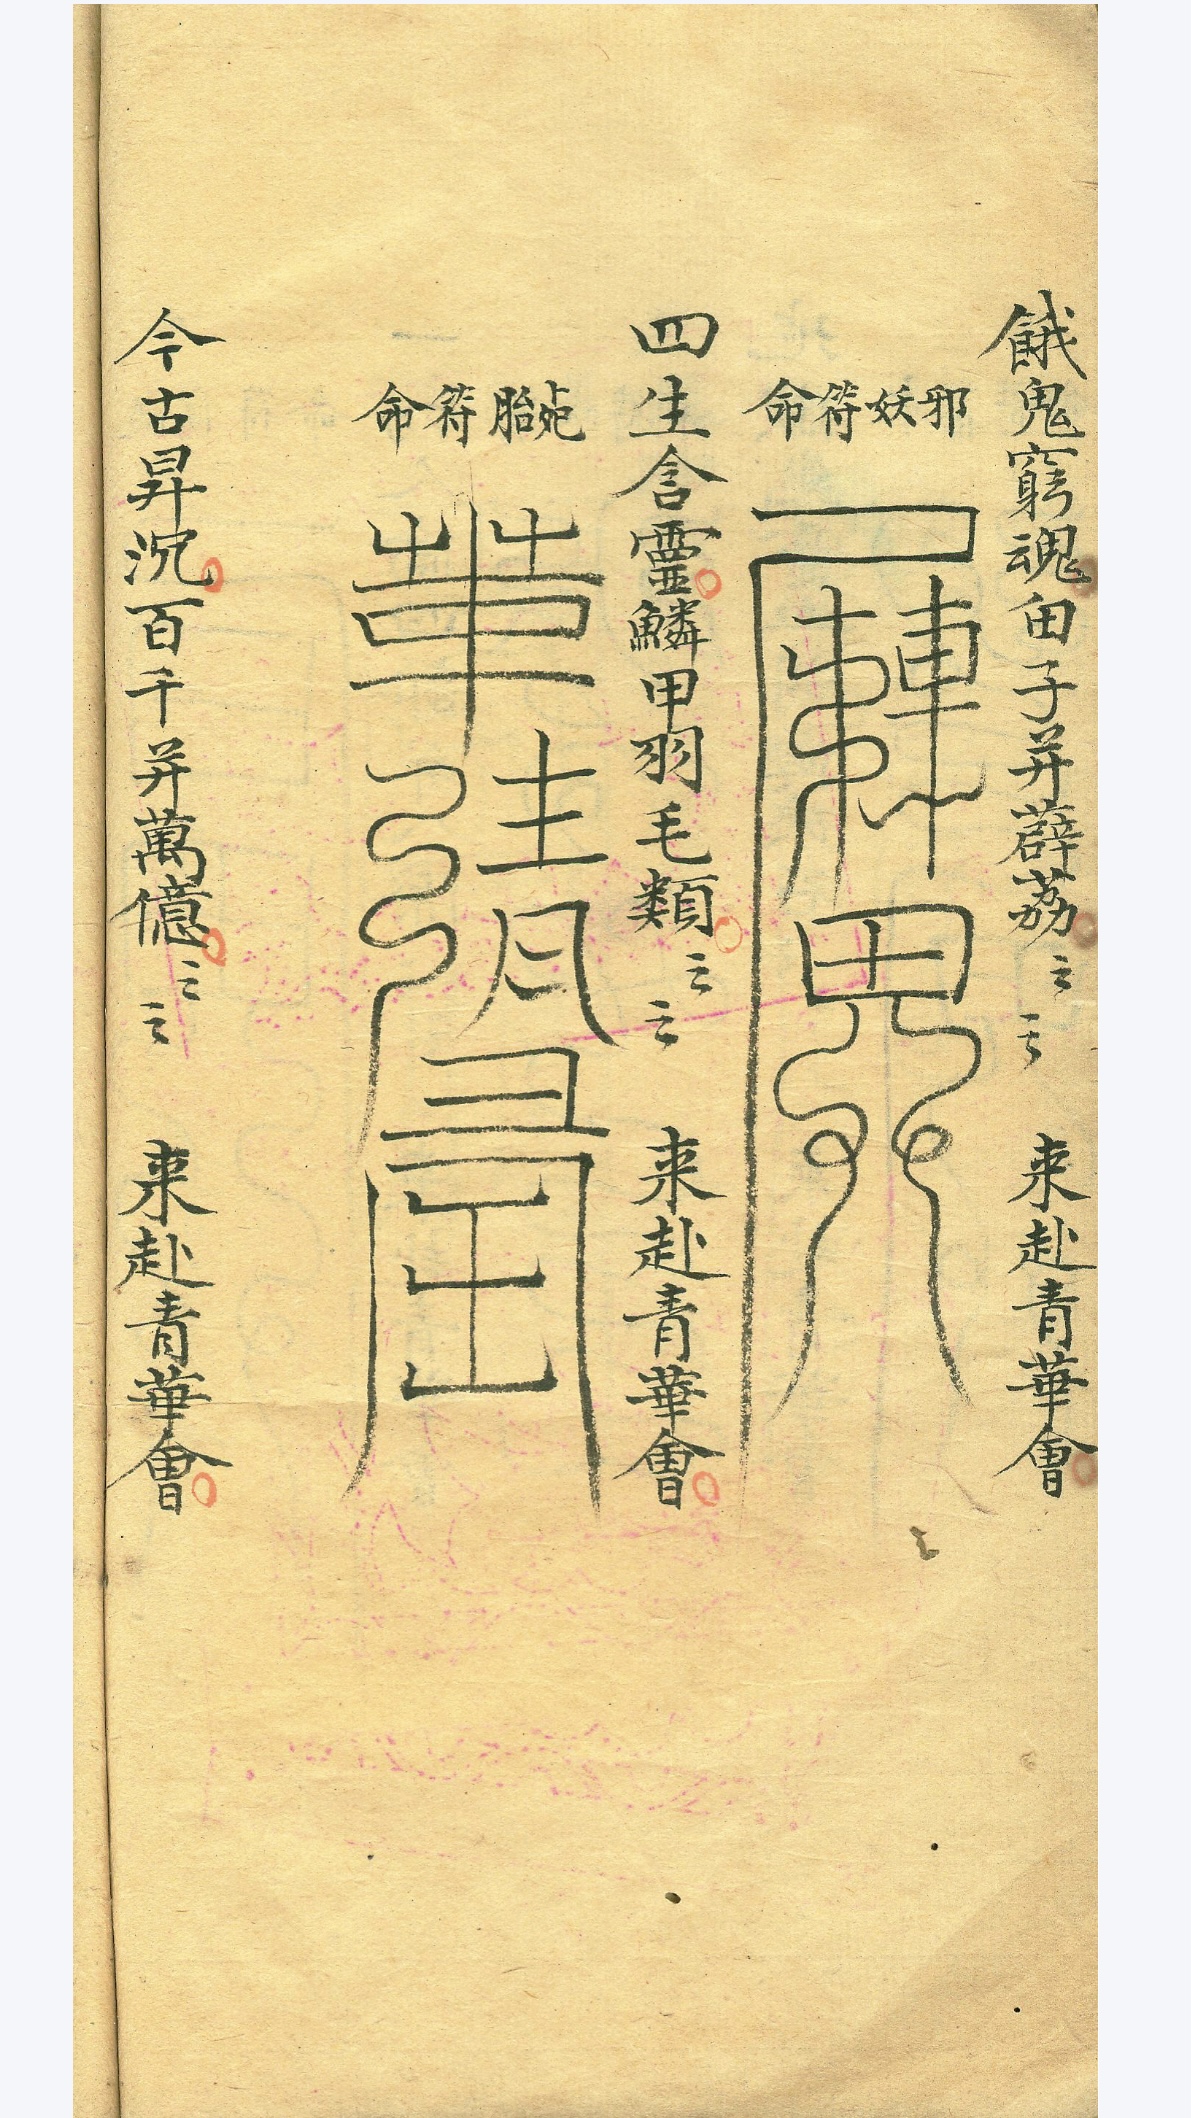 餓鬼窮魂由子并薜荔云云 来赴青華會
邪妖符命
四生含靈鱗甲羽毛類云云 来赴青華會
胎符命
今古昇沉百千并萬億云云 来赴青華會